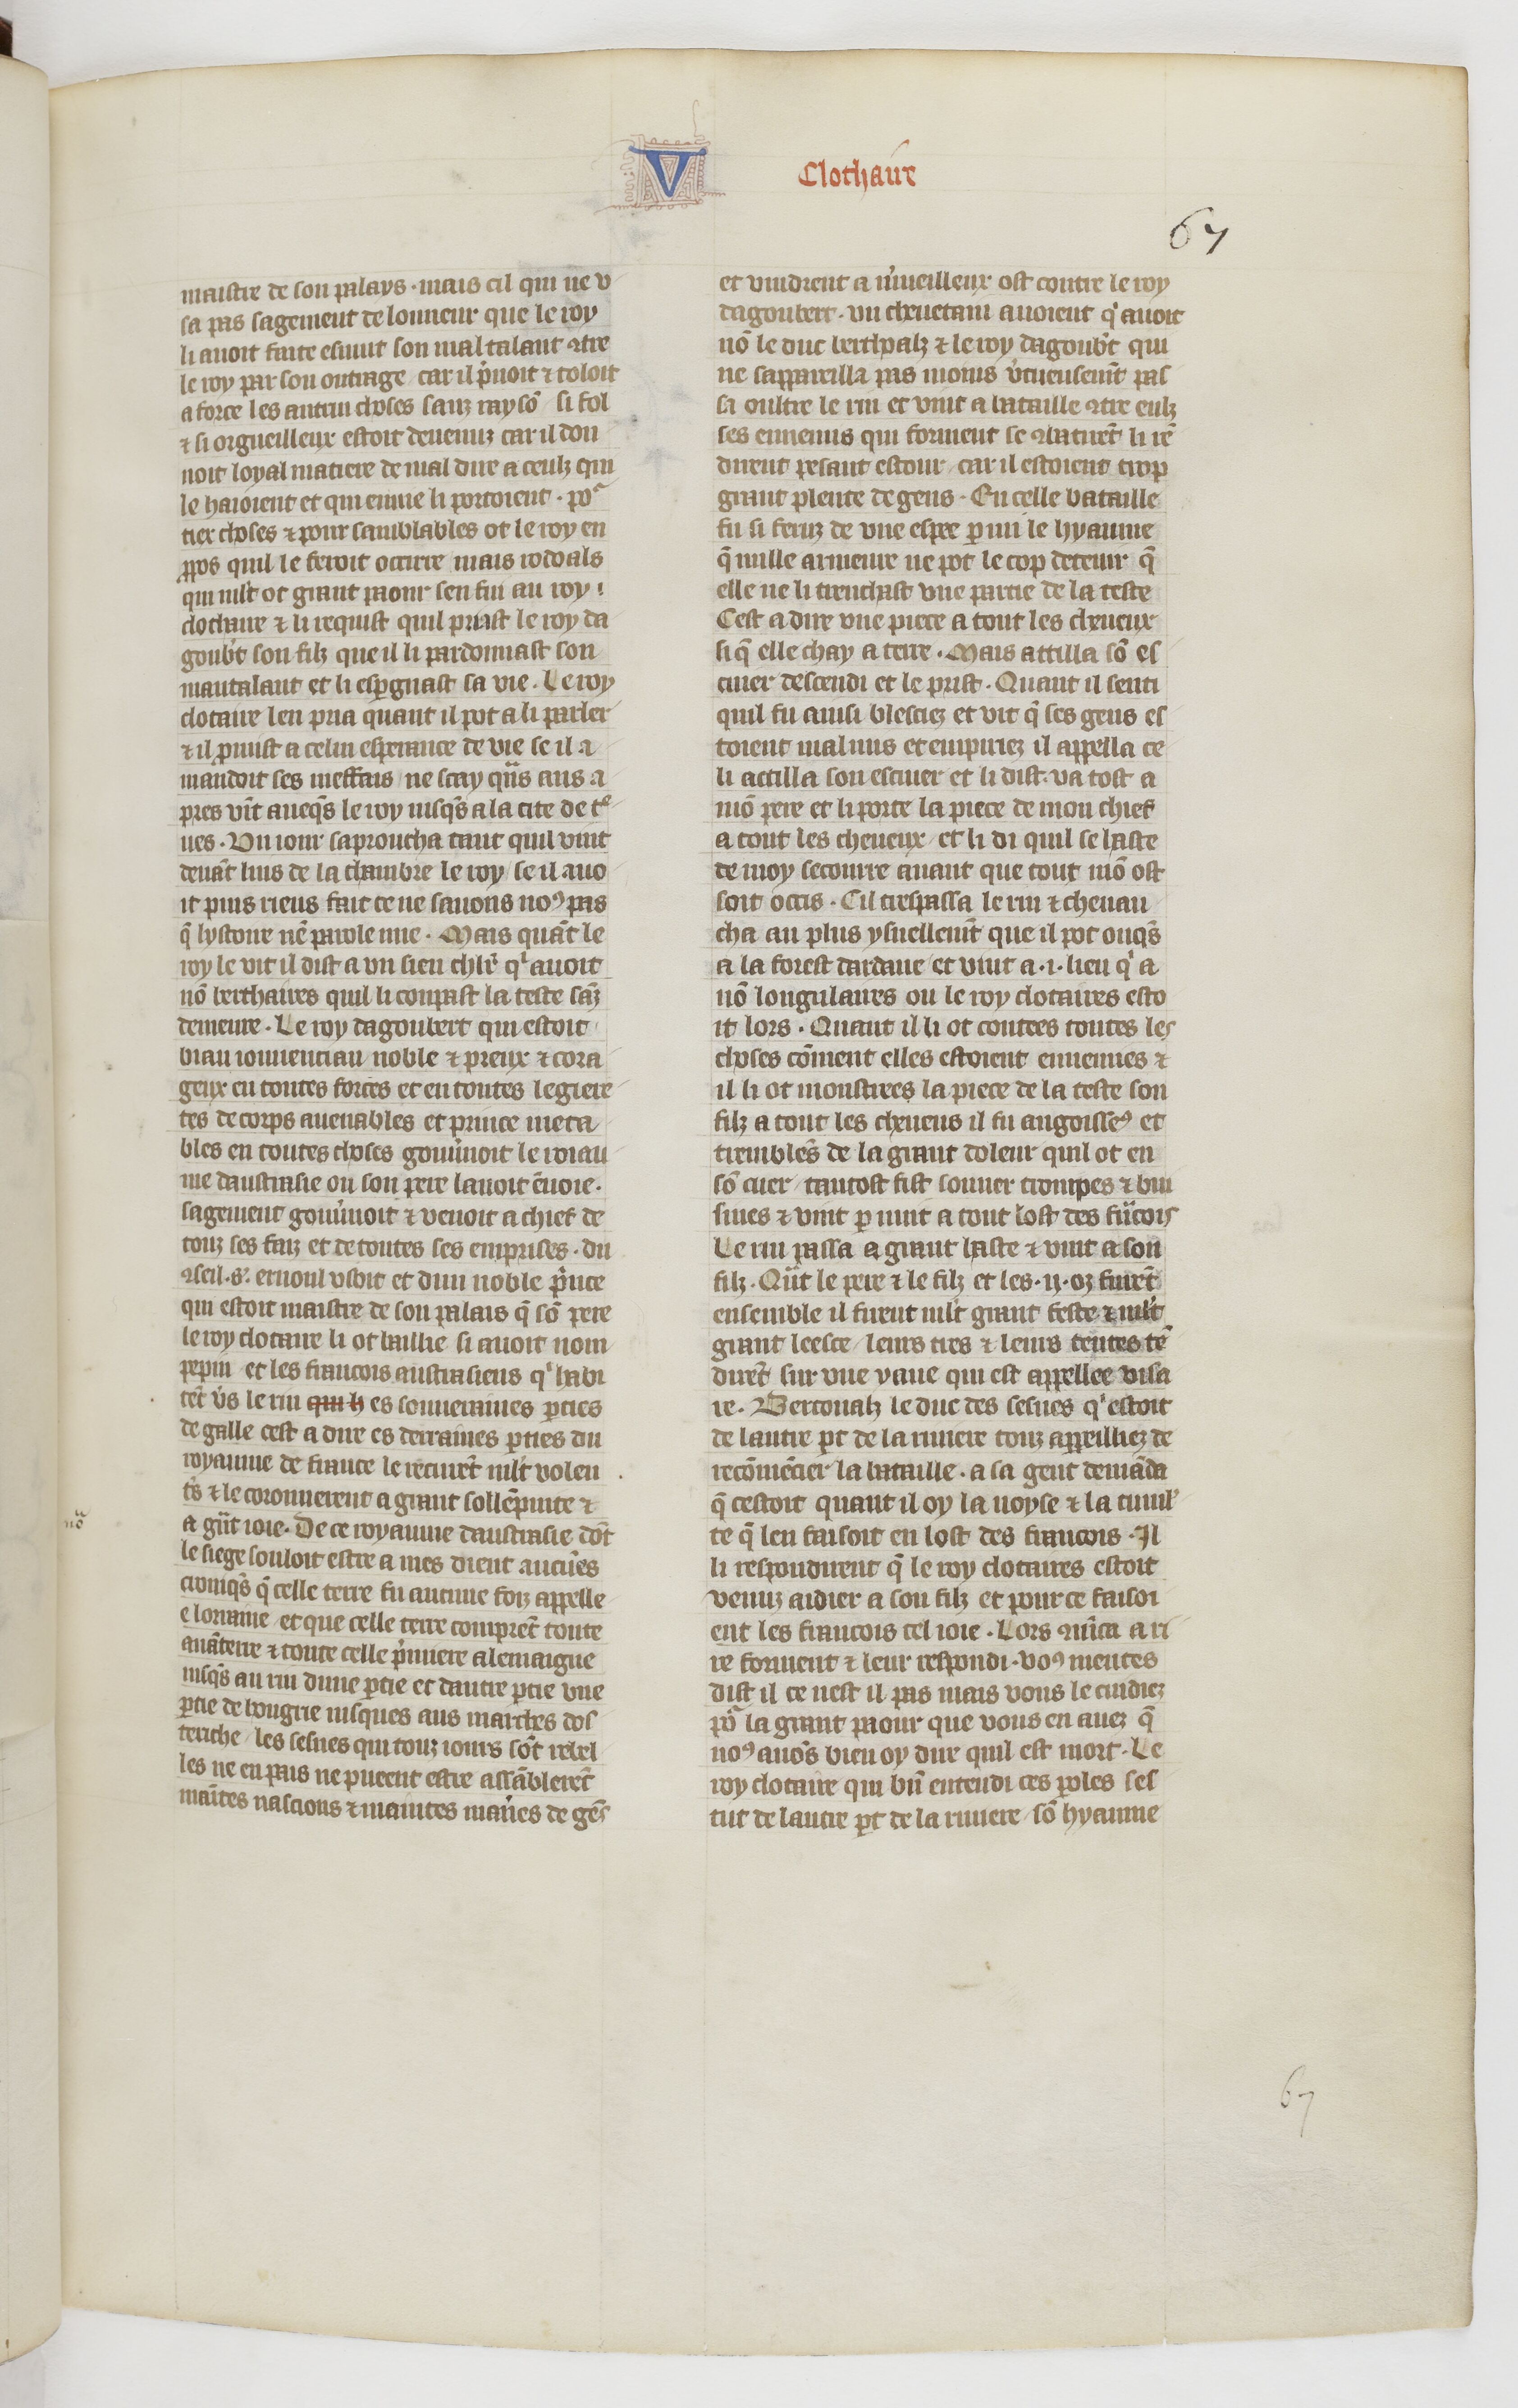 V
Clothaire
67
maistre de son palays · mais cil qui ne v
sa pas sagement de lonneur que le roy
li auoit faite esmut son mal talant ɔtre
le roy par son outrage car il p̾noit ⁊ toloit
a force les autrui choses sanz raysõ si fol
⁊ si orgueilleux estoit deuenuz car il don
noit loyal matiere de mal dire a ceulz qui
le haioient et qui enuie li portoient · po᷑
tiex choses ⁊ pour samblables ot le roy en
ꝓpos quil le feroit occirre mais rodoals
qui mlt ot grant paour sen fui au roy
clothaire ⁊ li requist quil priast le roy da
goub̾t son filz que il li pardonnast son
mautalant et li espgnast sa vie · Le roy
clotaire len pria quant il pot a li parler
⁊ il ꝓmist a celui esperance de vie se il a
mandoit ses meffais ne scay q̃ns ans a
pres vĩt auequs le roy iusqs a la cite de t
ues · Vn iour saproucha tant quil vint
deuãt luis de la chambre le roy se il auo
it puis riens fait ce ne sauons noꝰ pas
q̃ lystoire nẽ parole mie · Mais quãt le
roy le vit il dist a vn sien chlr̃ qⁱ auoit
nõ berthaires quil li coupast la teste sãz
demeure · Le roy dagoubert qui estoit
biau iouuenciau noble ⁊ preux ⁊ cora
geux en toutes forces et en toutes legiere
tes de corps auenables et prince meta
bles en toutes choses gouu̾noit le roiau
me daustrasie ou son pere lauoit ẽuoie ·
sagement gouu̾noit ⁊ venoit a chief de
touz ses faiz et de toutes ses emprises · du
ɔseil · s᷑ · ernoul vsoit et dun noble p̾nce
qui estoit maistre de son palais q̃ sõ pere
le roy clotaire li ot baillie si auoit nom
pepin et les francois austrasiens qⁱ habi
tẽt v̾s le rin qui h es souueraines ꝑties
de galle cest a dire es derraines ꝑties du
royaume de france le recurẽt mlt volen
t̾s ⁊ le coronnerent a grant sollẽpnite ⁊
a g̃nt ioie · De ce royaume daustrasie dõt
le siege souloit estre a mes dient aucũes
croniqs̃ q̃ celle terre fu aucune foiz appelle
e loraine et que celle terre comprẽt toute
auãterre ⁊ toute celle p̾miere alemaigne
iusqs̃ au rin dune ꝑtie et dautre ꝑtie vne
ꝑtie de hongrie iusques aus marches dos
teriche les sesnes qui touz iours sõt rebel
les ne en pais ne pueent estre assãblerẽt
maĩtes nascions ⁊ maintes mañes de gẽs
et vindrent a m̾ueilleux ost contre le roy
dagoubert · vn cheuetain auoient qⁱ auoit
nõ le duc berthoalz ⁊ le roy dagoub̾t qui
ne sappareilla pas moins v̾tueusemẽt pas
sa oultre le rin et vint a bataille ɔtre eulz
ses ennemis qui forment se ɔbatirẽt li rẽ
dirent pesant estour car il estoient trop
grant plente de gens · En celle bataille
fu si feruz de vne espee ꝑmi le hyaume
q̃ nulle armeure ne pot le cop detenir q̃
elle ne li trenchast vne partie de la teste
Cest a dire vne piece a tout les cheueux
si q̃ elle chay a terre · Mais attilla sõ es
cuier descendi et le prist · Quant il senti
quil fu ainsi blesciez et vit q̃ ses gens es
toient malmis et empiriez il appella ce
li actilla son escuier et li dist · va tost a
mõ pere et li porte la piece de mon chief
a tout les cheueux et li di quil se haste
de moy secourre auant que tout mõ ost
soit occis · Cil trespassa le rin ⁊ cheuau
cha au plus ysnellemẽt que il pot onqs̃
a la forest dardane et vint a · i · lieu qⁱ a
nõ longulaires ou le roy clotaires esto
it lors · Quant il li ot contees toutes les
choses cõment elles estoient enuenues ⁊
il li ot monstrees la piece de la teste son
filz a tout les cheueus il fu angoisseꝰ et
trembles̃ de la grant doleur quil ot en
sõ cuer tantost fist sonner trompes ⁊ bui
sines ⁊ vint ꝑ nuit a tout lost des frãcois
Le rin passa a grant haste ⁊ vint a son
filz · Qñt le pere ⁊ le filz et les · ij · oz furẽt
ensemble il firent mlt grant feste ⁊ mlt
grant leesce leurs tres ⁊ leurs tentes tẽ
dirẽt sur vne yaue qui est appellee visa
ire · Bertoualz le duc des sesnes qⁱ estoit
de lautre ꝑt de la riuiere touz appeilliez de
recõmẽcier la bataille · a sa gent demãda
q̃ cestoit quant il oy la noyse ⁊ la tumˡ
te q̃ len faisoit en lost des francois · Il
li respondirent q̃ le roy clotaires estoit
venuz aidier a son filz et pour ce faisoi
ent les francois tel ioie · Lors ɔm̃ca a ri
re forment ⁊ leur respondi · voꝰ mentes
dist il ce nest il pas mais vous le cuidiez
po᷑ la grant paour que vous en auez q̃
noꝰ auõs bien oy dire quil est mort · Le
roy clotaire qui biñ entendi ces ꝑoles ses
tut de lautre ꝑt de la riuiere sõ hyaume
67